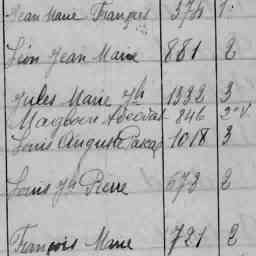 Jean Marie François 374 1
Léon Jean Marie 881 2
Jules Marie Jh 1332 3
846 2
Louis Auguste Pascal 1018 3
Louis Jh Pierre 673 2
François Marie 721 2